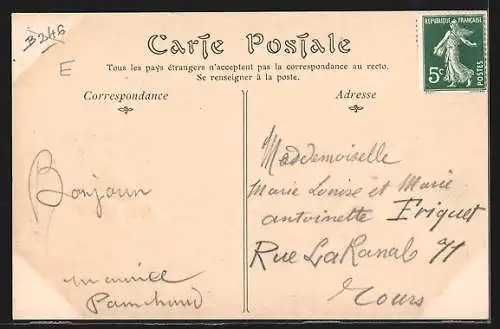 3246
E
Carte Postale
Tous les pays étrangers n'acceptent pas la correspondance au recto.
Se renseigner à la poste.
Correspondance
Adresse
REPUBLIQUE FRANÇAISE
5c
POSTES
Bonjour
maurice
Maddemoiselle
Marie Louise et Marie
antoinette Friquet
Rue LaKanal 71
Tours